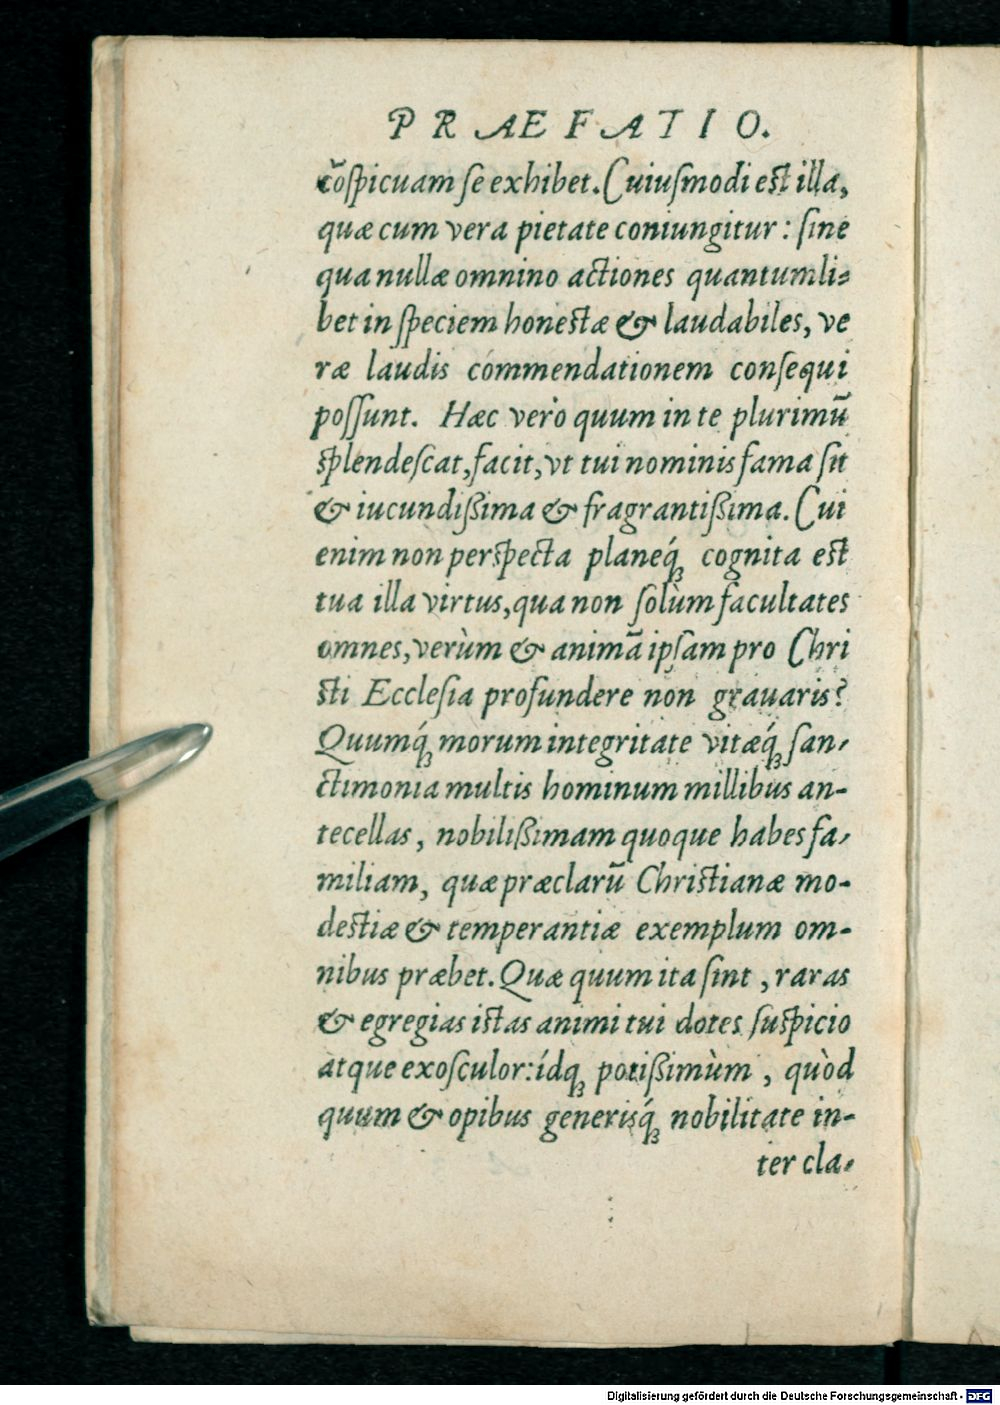 PRAEFATIO.
cõſpicuam ſe exhibet. Cuiuſmodi est illa,
quæ cum vera pietate coniungitur: ſine
qua nullæ omnino actiones quantumli-
bet in ſpeciem honestæ & laudabiles, ve
ræ laudis commendationem conſequi
poſſunt. Hæc verò quum in te plurimũ
ſplendeſcat, facit, vt tui nominis fama ſit
& iucundißima & fragrantißima. Cui
enim non perſpecta planeq́; cognita est
tua illa virtus, qua non ſolùm facultates
omnes, verùm & animã ipſam pro Chri
sti Eccleſia profundere non grauaris?
Quumq́; morum integritate vitæq́; ſan-
ctimonia multis hominum millibus an-
tecellas, nobilißimam quoque habes fa-
miliam, quæ præclarũ Christianæ mo-
destiæ & temperantiæ exemplum om-
nibus præbet. Quæ quum ita ſint, raras
& egregias istas animi tui dotes ſuſpicio
atque exoſculor: ídq; potißimùm, quòd
quum & opibus generisq́; nobilitate in-
ter cla-
Digitalisierung gefördert durch die Deutsche Forschungsgemeinschaft - DFG